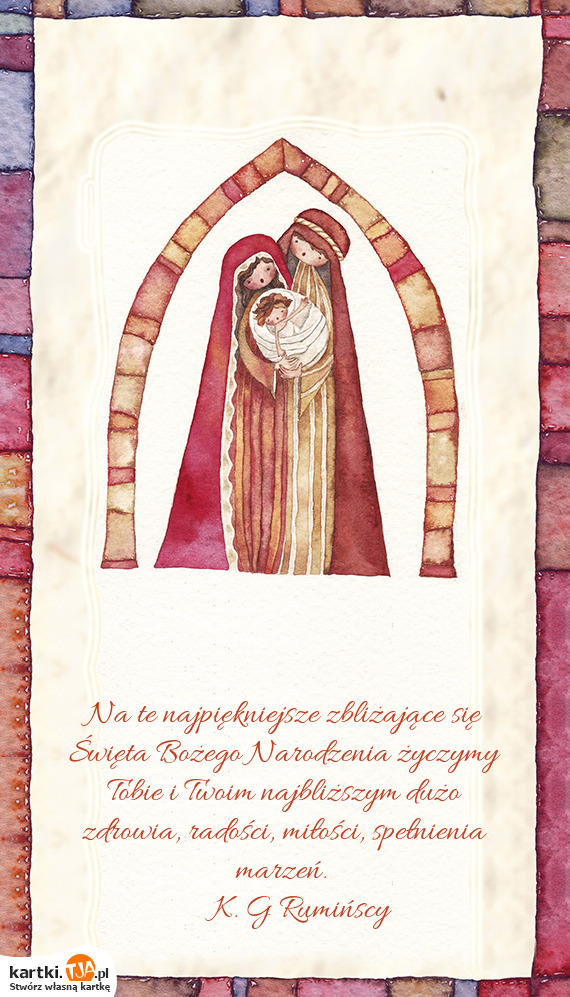 Na te najpiękniejsze zbliżające się
Święta Bożego Narodzenia życzymy
Tobie i Twoim najbliższym dużo
zdrowia, radości, miłości, spełnienia
marzeń.
K. G Rumińscy
kartki.TJA.pl
Stwórz własną kartkę